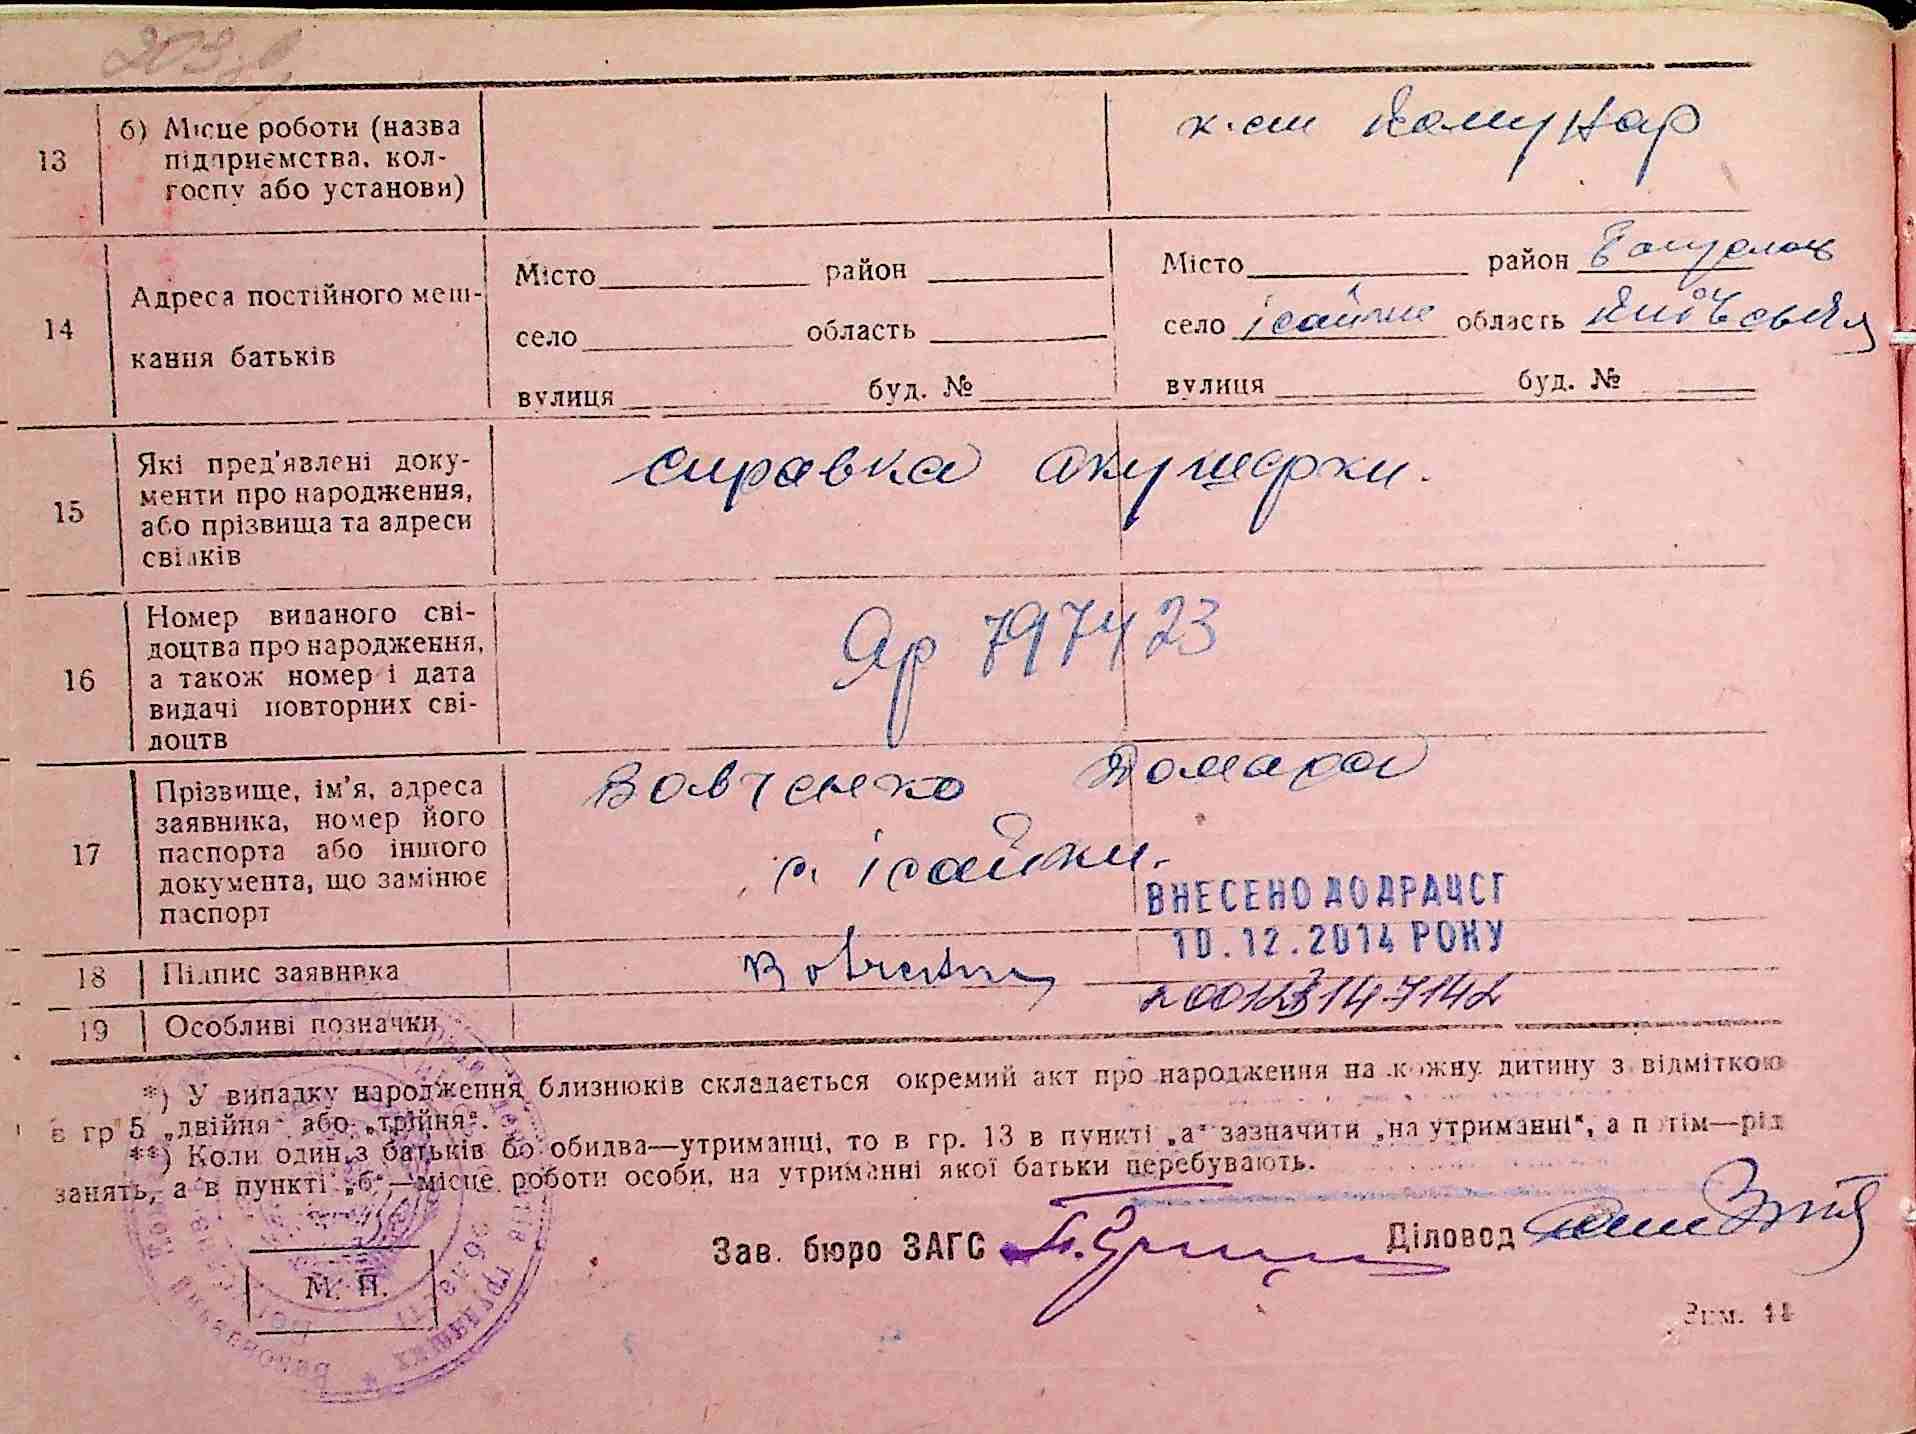 13
б) Місце роботи (назва
підприємства, кол-
госпу або установи)
к-сп Комунар
14
Адреса постійного меш-
кання батьків
Місто район
село область
вулиця буд. №
Місто район Богуслав
село Ісайки область Київська
вулиця буд. №
15
Які пред'явлені доку-
менти про народження,
або прізвища та адреси
свідків
справка акушерки.
16
Номер виданого сві-
доцтва про народження,
а також номер і дата
видачі повторних сві-
доцтв
Яр 797423
17
Прізвище, ім'я, адреса
заявника, номер його
паспорта або іншого
документа, що замінює
паспорт
Вовченко Томара
с. Ісайки.
ВНЕСЕНО ДО ДРАЦСГ
10.12.2014 РОКУ
18
Підпис заявника
Вовченко
19
Особливі позначки
*) У випадку народження близнюків складається окремий акт про народження на кожну дитину з відміткою
в гр 5 „двійня" або „трійня".
**) Коли один з батьків бо обидва—утриманці, то в гр. 13 в пункті „а" зазначити „на утриманні", а потім—рід
занять, а в пункті „б"—місце роботи особи, на утриманні якої батьки перебувають.
Зав. бюро ЗАГС
Діловод
М. П.